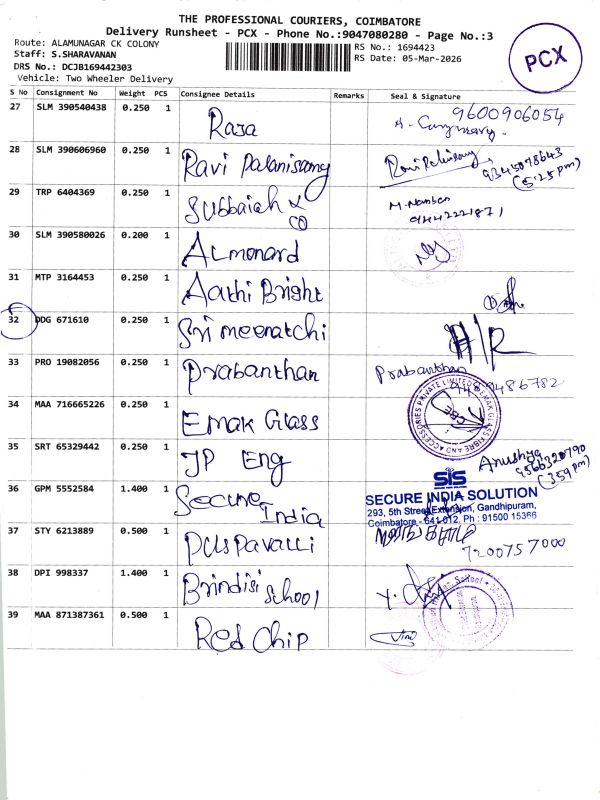 THE PROFESSIONAL COURIERS, COIMBATORE
Delivery Runsheet - PCX - Phone No.:9047080280 - Page No.:3
PCX
Route: ALAMUNAGAR CK COLONY
Staff: S.SHARAVANAN
DRS No.: DCJB169442303
Vehicle: Two Wheeler Delivery
RS No.: 1694423
RS Date: 05-Mar-2026
S No Consignment No Weight PCS Consignee Details Remarks Seal & Signature
27 SLM 390540438 0.250 1 Raja 9600906054
28 SLM 390606960 0.250 1 Ravi Palanisamy 9345078643 (5:25 pm)
29 TRP 6404369 0.250 1 Subbaiah & Co
30 SLM 390580026 0.200 1 Almonard
31 MTP 3164453 0.250 1 Aathi Bright
32 DDG 671610 0.250 1 Sri meenatchi H/R
33 PRO 19082056 0.250 1 Prabanthan Prabanthan
34 MAA 716665226 0.250 1 Emak Glass
35 SRT 65329442 0.250 1 JP Eng Anushya 9566320790 (3:59 pm)
36 GPM 5552584 1.400 1 Secure India
SIS
SECURE INDIA SOLUTION
293, 5th Street Extension, Gandhipuram,
Coimbatore - 641 012. Ph : 91500 15366
37 STY 6213889 0.500 1 Puspavalli 7200757000
38 DPI 998337 1.400 1 Brindisi School
39 MAA 871387361 0.500 1 Red Chip